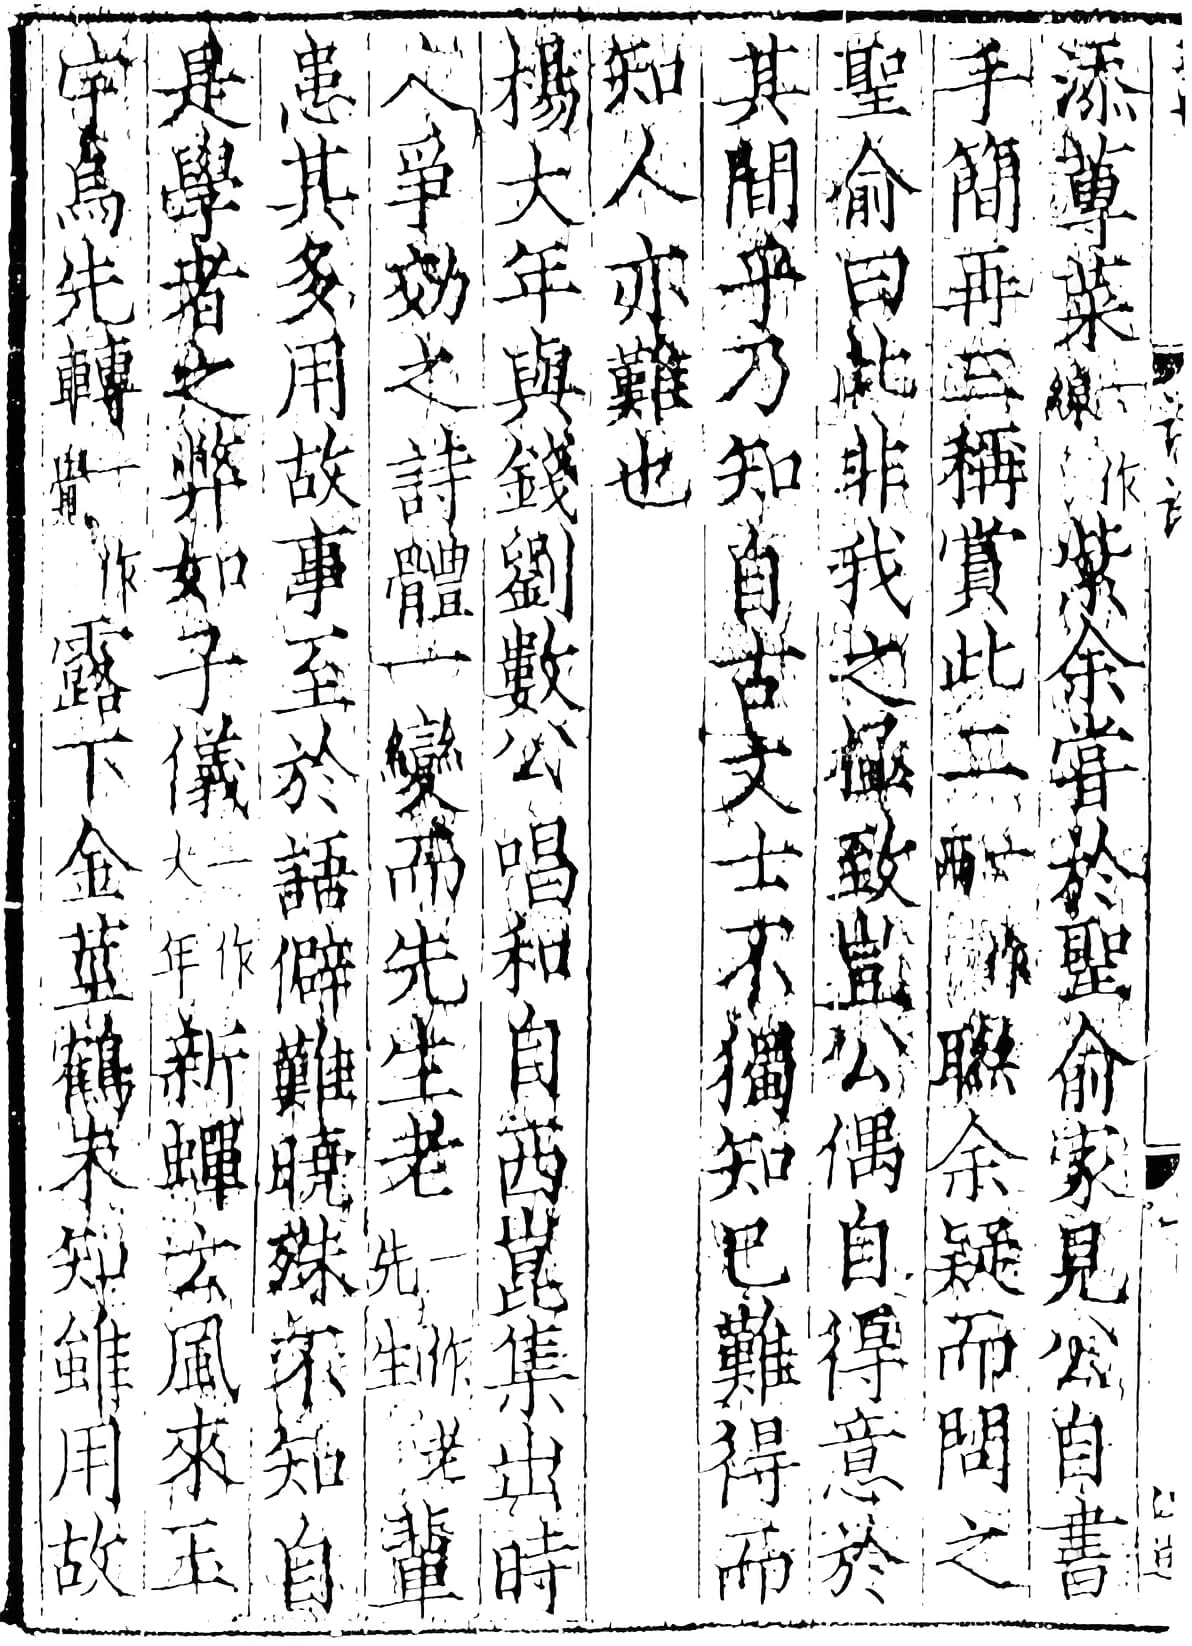 添蓴菜一作線紫余甞於聖俞家見公自書
手簡再三稱賞此二一作兩聯余疑而問之
聖俞曰此非我之極致豈公偶自得意於
其間乎乃知自古文士不獨知已難得而
知人亦難也
楊大年與錢劉數公唱和自西崑集出時
人爭效之詩體一變而先生老一作先生老輩
患其多用故事至於語僻難曉殊不知自
是學者之弊如子儀一作大年新蟬云風來玉
宇烏先轉一作覺露下金莖鶴未知雖用故